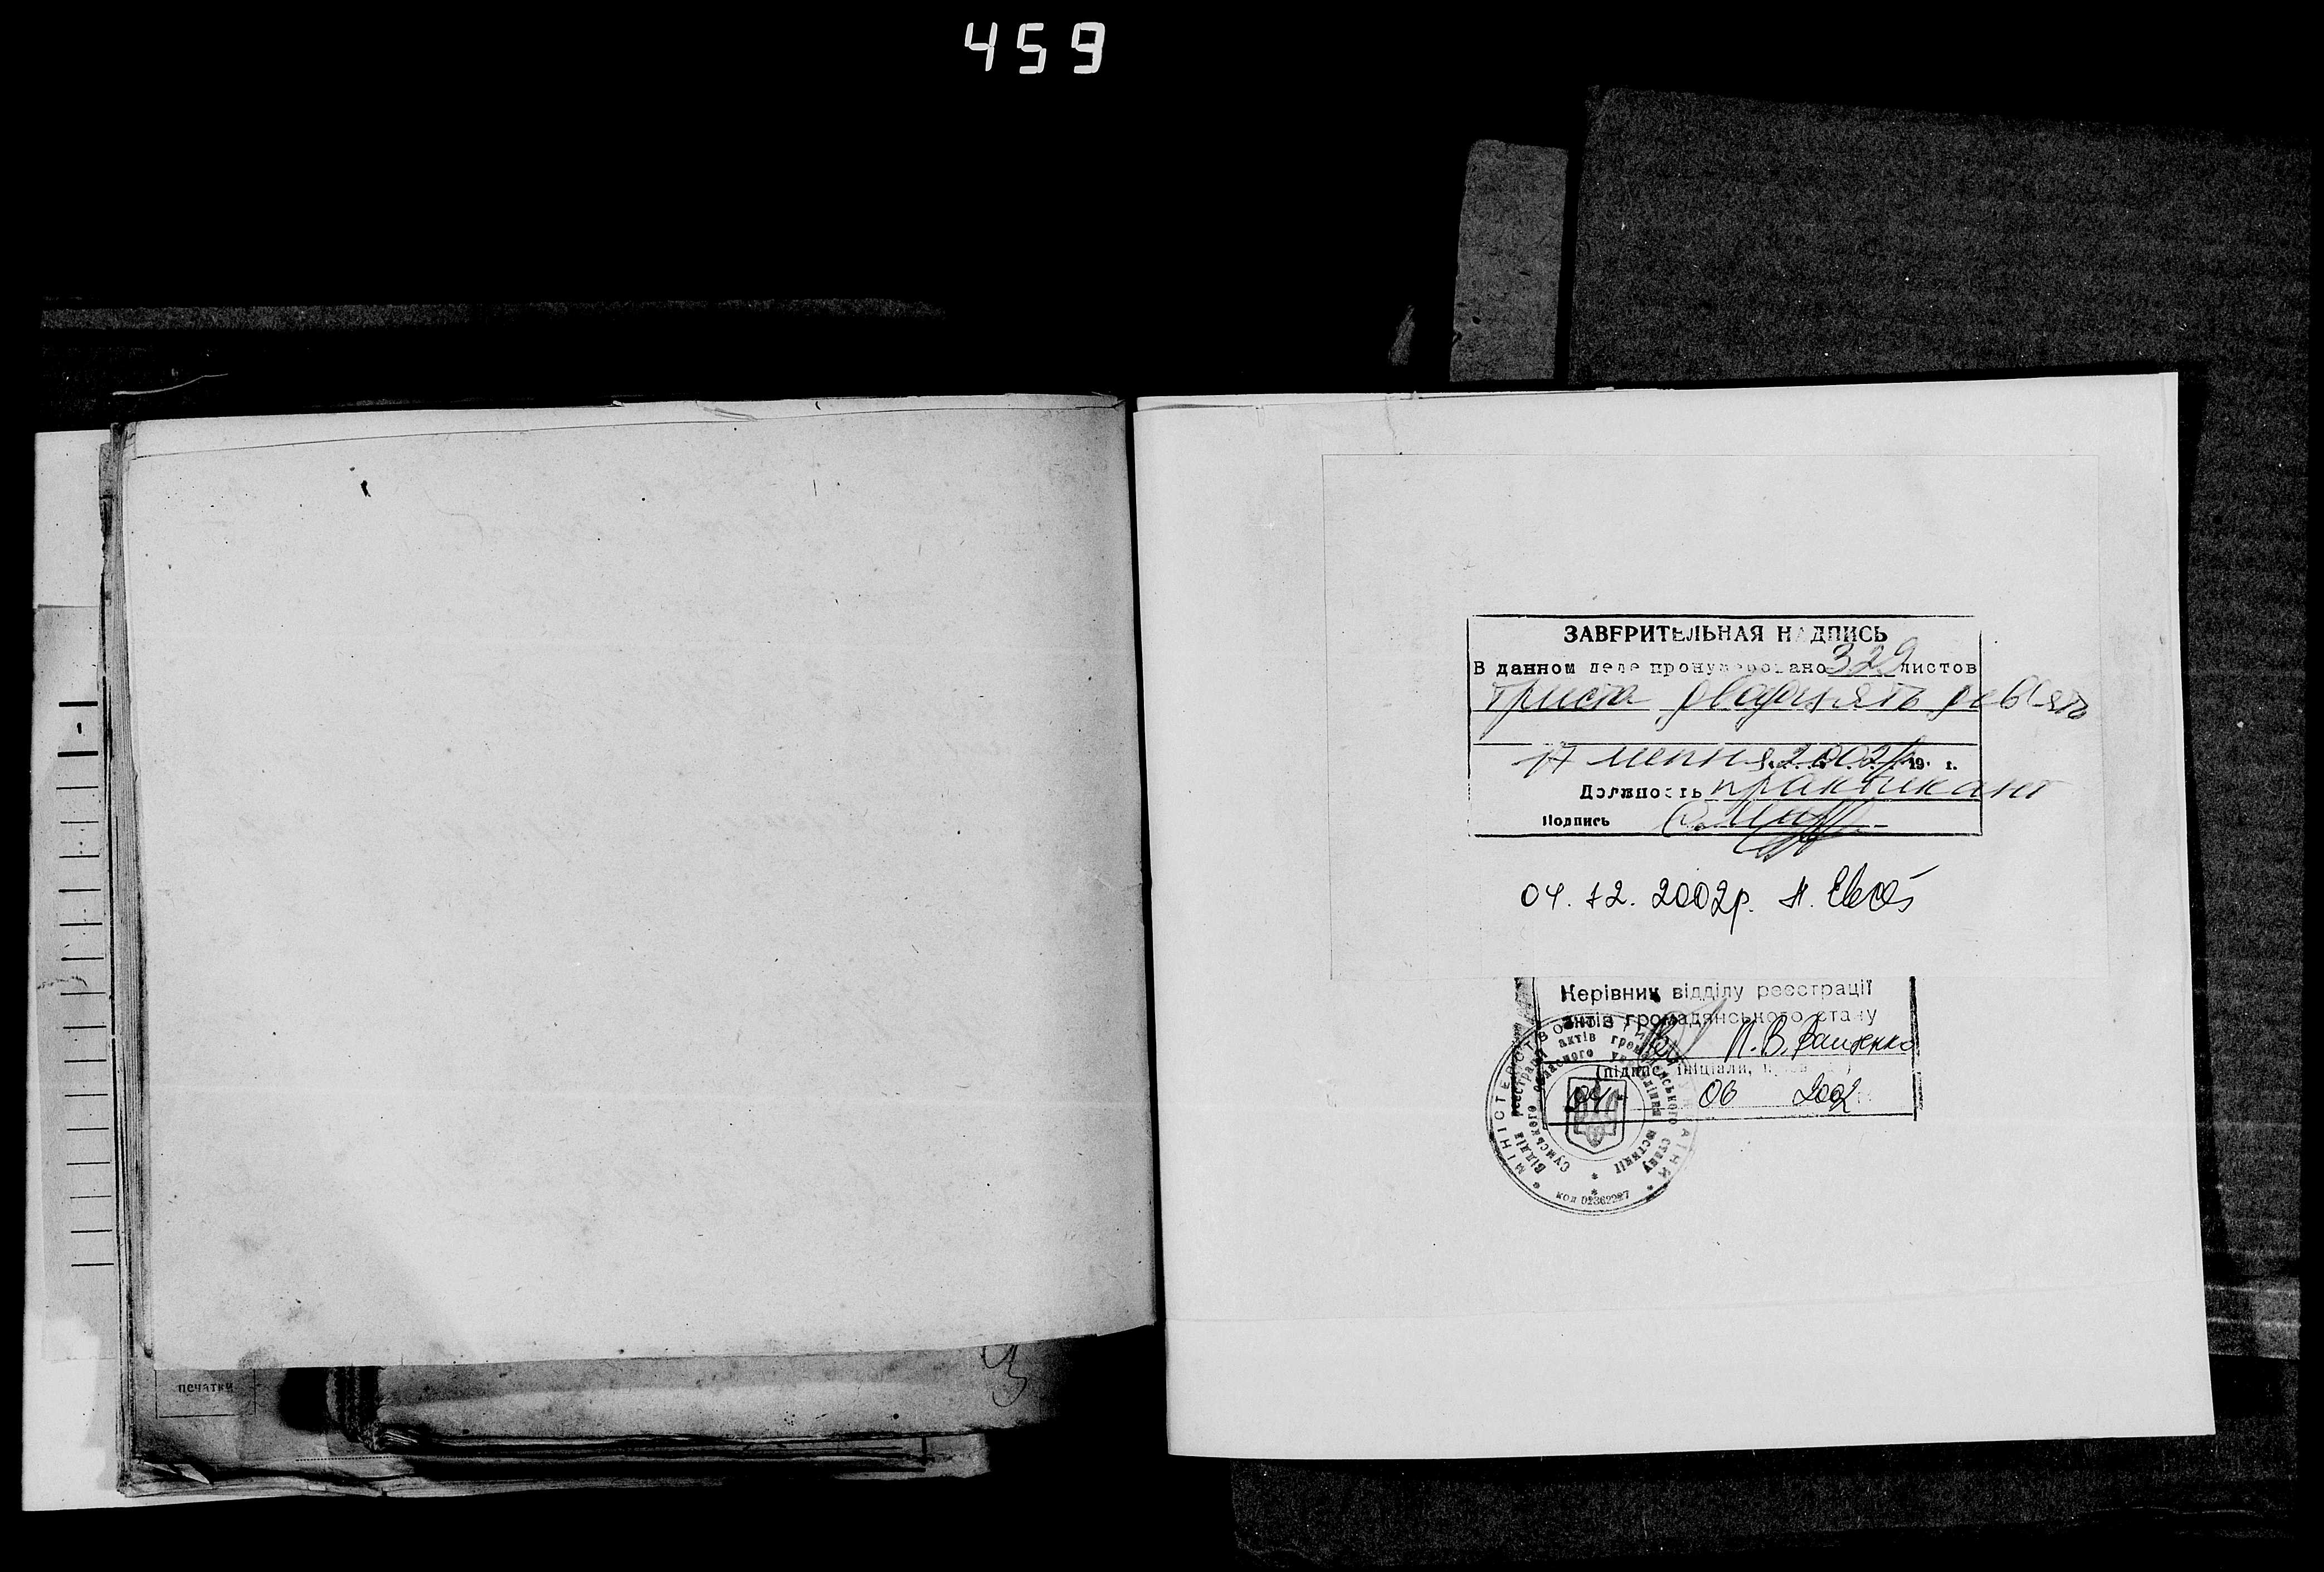 459
ЗАВЕРИТЕЛЬНАЯ НАДПИСЬ
В данном деле пронумеровано 329 листов
триста двадцять девять
2002 19 г.
Должность практикант
Подпись
04.12.2002р.
Керівник відділу реєстрації
актів громадянського стану
(підпис, ініціали,
06 2002
МІНІСТЕРСТВО ЮСТИЦІЇ УКРАЇНИ
Відділ реєстрації актів громадянського стану
Сумського обласного управління юстиції
код 02362227
печатки